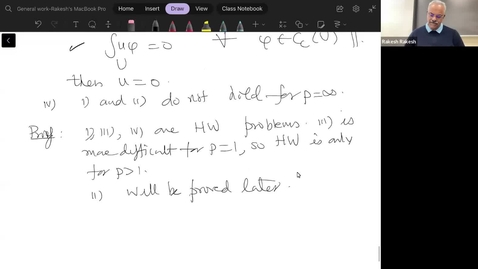 General work-Rakesh's MacBook Pro
Class Notes
Draw
View
✓ ∫ uφ = 0 ∀ φ ∈ C_c(U) ||.
U
then u = 0.
iv) i) and ii) do not hold for p=∞
Proof: i), iii), iv) are HW problems. iii) is
more difficult for p=1, so HW is only
for p>1.
ii) will be proved later.
Rakesh Rakesh